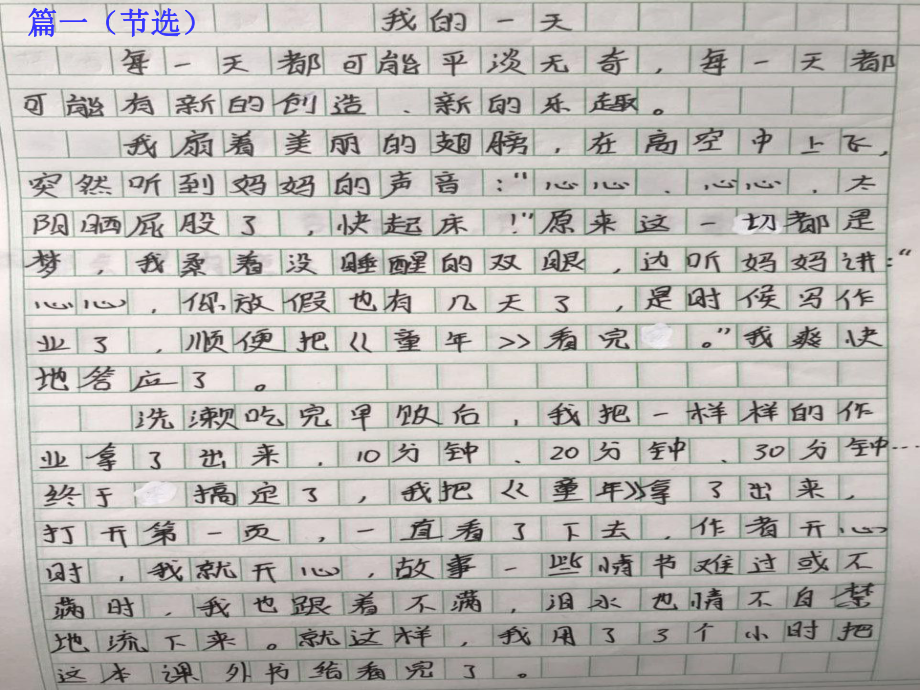 篇一（节选）
我的一天
每一天都可能平淡无奇，每一天都
可能有新的创造、新的乐趣。
我扇着美丽的翅膀，在高空中上飞，
突然听到妈妈的声音：“心心、心心，太
阳晒屁股了，快起床！”原来这一切都是
梦，我柔着没睡醒的双眼，边听妈妈讲：“
心心，你放假也有几天了，是时候写作
业了，顺便把《童年》看完。”我爽快
地答应了。
洗漱吃完早饭后，我把一样样的作
业拿了出来，10分钟、20分钟、30分钟…
终于搞定了，我把《童年》拿了出来，
打开第一页，一直看了下去，作者开心
时，我就开心，故事一些情节难过或不
满时，我也跟着不满，泪水也情不自禁
地流下来。就这样，我用了3个小时把
这本课外书给看完了。